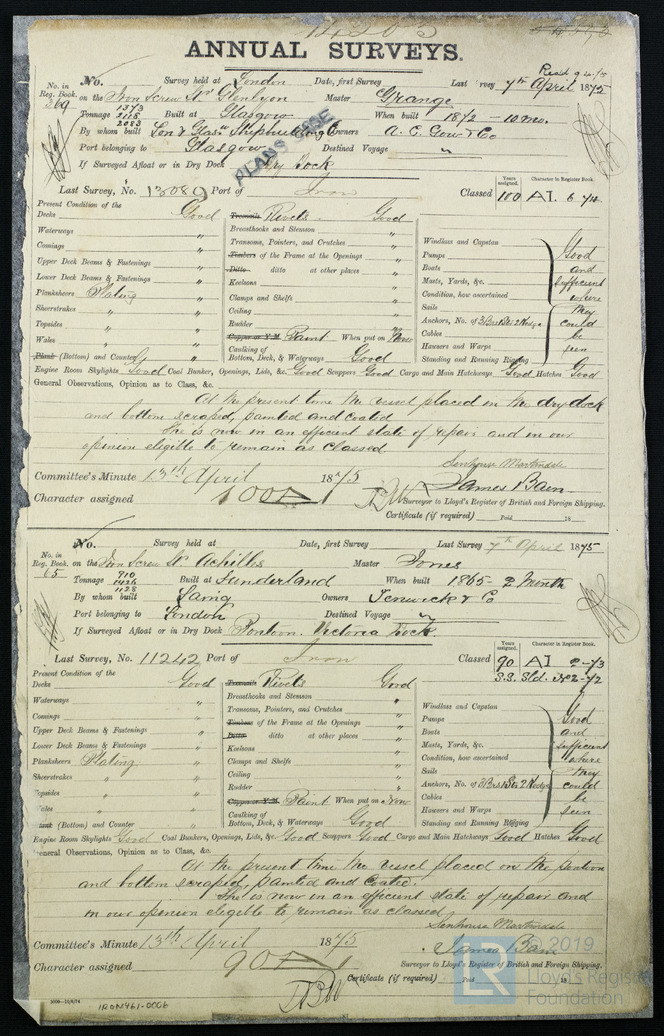 14303
ANNUAL SURVEYS.
No. Survey held at London Date, first Survey Last Survey 7th April 1875
Recd 9.4.75
No. in Reg. Book. 269 on the Iron Screw Str Glenlyon Master Grange
Tonnage 1373 2118 2083 Built at Glasgow When built 1872 - 10 mo.
By whom built Lon & Glasw Shipbuilding Co Owners A. C. Gow & Co
Port belonging to Glasgow Destined Voyage "
PLANS CASE
If Surveyed Afloat or in Dry Dock Dry Dock
Last Survey, No. 13089 Port of Iron Classed Years assigned. 100 Character in Register Book. A1. 6 74
Present Condition of the
Decks Good Treenails Rivets Good
Waterways " Breasthooks and Stemson "
Comings " Transoms, Pointers, and Crutches " Windlass and Capstan Good
Upper Deck Beams & Fastenings " Timbers of the Frame at the Openings " Pumps and
Lower Deck Beams & Fastenings " Ditto ditto at other places " Boats sufficient
Planksheers Plating " Keelsons " Masts, Yards, &c. where
Sheerstrakes " Clamps and Shelfs " Condition, how ascertained they
Topsides " Ceiling " Sails could
Wales " Rudder " Anchors, No. of 3 Bors 1 Str 2 Kedge be
Plank (Bottom) and Counter " Copper or Y.M. Paint When put on Now Cables seen
Caulking of Bottom, Deck, & Waterways Good Hawsers and Warps
Standing and Running Rigging
Engine Room Skylights Good Coal Bunker, Openings, Lids, &c. Good Scuppers Good Cargo and Main Hatchways Good Hatches Good
General Observations, Opinion as to Class, &c.
At the present time the vessel placed in the dry dock
and bottom scraped, painted and coated
She is now in an efficient state of repair and in our
opinion eligible to remain as classed
Senhouse Martindale
James Bain
Committee's Minute 13th April 1875
Character assigned 100A1
Surveyor to Lloyd's Register of British and Foreign Shipping.
Certificate (if required) Paid 18
No. Survey held at Date, first Survey Last Survey 7th April 1875
No. in Reg. Book. 65 on the Iron Screw Str Achilles Master Jones
Tonnage 910 1426 1128 Built at Sunderland When built 1865 - 2 Month
By whom built Laing Owners Fenwick & Co
Port belonging to London Destined Voyage "
If Surveyed Afloat or in Dry Dock Pontoon. Victoria Dock.
Last Survey, No. 11242 Port of Iron Classed Years assigned. 90 Character in Register Book. A1 2-73
S.S. Sld. No2-72
Present Condition of the
Decks Good Treenails Rivets Good
Waterways " Breasthooks and Stemson "
Comings " Transoms, Pointers, and Crutches " Windlass and Capstan Good
Upper Deck Beams & Fastenings " Timbers of the Frame at the Openings " Pumps and
Lower Deck Beams & Fastenings " Ditto ditto at other places " Boats sufficient
Planksheers Plating " Keelsons " Masts, Yards, &c. where
Sheerstrakes " Clamps and Shelfs " Condition, how ascertained they
Topsides " Ceiling " Sails could
Wales " Rudder " Anchors, No. of 3 Bors 1 Str 2 Kedge be
Plank (Bottom) and Counter " Copper or Y.M. Paint When put on Now Cables seen
Caulking of Bottom, Deck, & Waterways Good Hawsers and Warps
Standing and Running Rigging
Engine Room Skylights Good Coal Bunkers, Openings, Lids, &c Good Scuppers Good Cargo and Main Hatchways Good Hatches Good
General Observations, Opinion as to Class, &c.
At the present time the vessel placed on the pontoon
and bottom scraped, painted and coated.
She is now in an efficient state of repair and
in our opinion eligible to remain as classed
Senhouse Martindale
James Bain
Committee's Minute 13th April 1875
Character assigned 90A1
Surveyor to Lloyd's Register of British and Foreign Shipping.
Certificate (if required) Paid 18
IRON461-0006
© 2019
LR
Lloyd's Register
Foundation